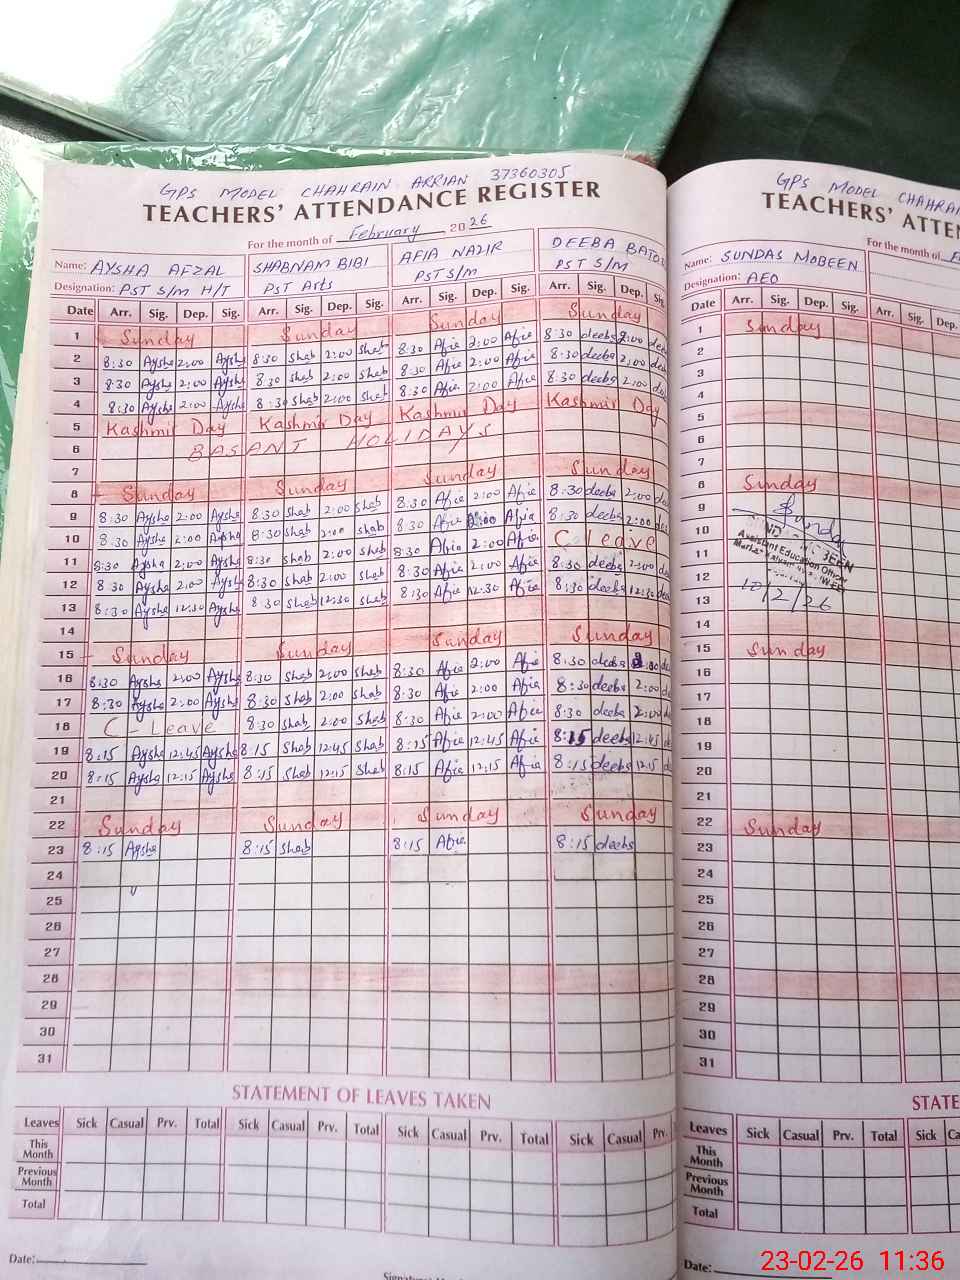 GPS MODEL CHAHRAIN ARRIAN 37360305
TEACHERS' ATTENDANCE REGISTER
For the month of February 2026
Name: AYSHA AFZAL SHABNAM BIBI AFIA NAZIR DEEBA
Designation: PST S/M H/T PST Arts PST S/M PST S/M
Date Arr. Sig. Dep. Sig. Arr. Sig. Dep. Sig. Arr. Sig. Dep. Sig. Arr. Sig. Dep. Sig.
1 Sunday Sunday Sunday Sunday
2 8:30 Aysha 2:00 Aysha 8:30 Shab 2:00 Shab 8:30 Afia 2:00 Afia 8:30 deeba 2:00
3 8:30 Aysha 2:00 Aysha 8:30 Shab 2:00 Shab 8:30 Afia 2:00 Afia 8:30 deeba 2:00
4 8:30 Aysha 2:00 Aysha 8:30 Shab 2:00 Shab 8:30 Afia 2:00 Afia 8:30 deeba 2:00
5 Kashmir Day Kashmir Day Kashmir Day Kashmir Day
6 BASANT HOLIDAYS
7
8 Sunday Sunday Sunday Sunday
9 8:30 Aysha 2:00 Aysha 8:30 Shab 2:00 Shab 8:30 Afia 2:00 Afia 8:30 deeba 2:00
10 8:30 Aysha 2:00 Aysha 8:30 Shab 2:00 Shab 8:30 Afia 2:00 Afia 8:30 deeba 2:00
11 8:30 Aysha 2:00 Aysha 8:30 Shab 2:00 Shab 8:30 Afia 2:00 Afia C Leave
12 8:30 Aysha 2:00 Aysha 8:30 Shab 2:00 Shab 8:30 Afia 2:00 Afia 8:30 deeba 2:00
13 8:30 Aysha 12:30 Aysha 8:30 Shab 12:30 Shab 8:30 Afia 12:30 Afia 8:30 deeba 12:30
14
15 Sunday Sunday Sunday Sunday
16 8:30 Aysha 2:00 Aysha 8:30 Shab 2:00 Shab 8:30 Afia 2:00 Afia 8:30 deeba 2:00
17 8:30 Aysha 2:00 Aysha 8:30 Shab 2:00 Shab 8:30 Afia 2:00 Afia 8:30 deeba 2:00
18 C-Leave 8:30 Shab 2:00 Shab 8:30 Afia 2:00 Afia 8:30 deeba 2:00
19 8:15 Aysha 12:45 Aysha 8:15 Shab 12:45 Shab 8:15 Afia 12:45 Afia 8:15 deeba 12:45
20 8:15 Aysha 12:15 Aysha 8:15 Shab 12:15 Shab 8:15 Afia 12:15 Afia 8:15 deeba 12:15
21
22 Sunday Sunday Sunday Sunday
23 8:15 Aysha 8:15 Shab 8:15 Afia 8:15 deeba
24
25
26
27
28
29
30
31
STATEMENT OF LEAVES TAKEN
Leaves Sick Casual Prv. Total Sick Casual Prv. Total Sick Casual Prv. Total Sick Casual Prv.
This Month
Previous Month
Total
Date:
GPS MODEL
TEACHERS'
For the month of
Name: SUNDAS MOBEEN
Designation: AEO
Date Arr. Sig. Dep. Sig. Arr. Sig. Dep.
1 Sunday
2
3
4
5
6
7
8 Sunday
9
10
11 Assistant Education Officer
12
13 10/2/26
14
15 Sunday
16
17
18
19
20
21
22 Sunday
23
24
25
26
27
28
29
30
31
Leaves Sick Casual Prv. Total Sick
This Month
Previous Month
Total
Date:
23-02-26 11:36